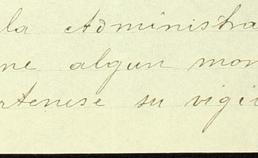 la Administra
ne algun mon
rtenese su vigi